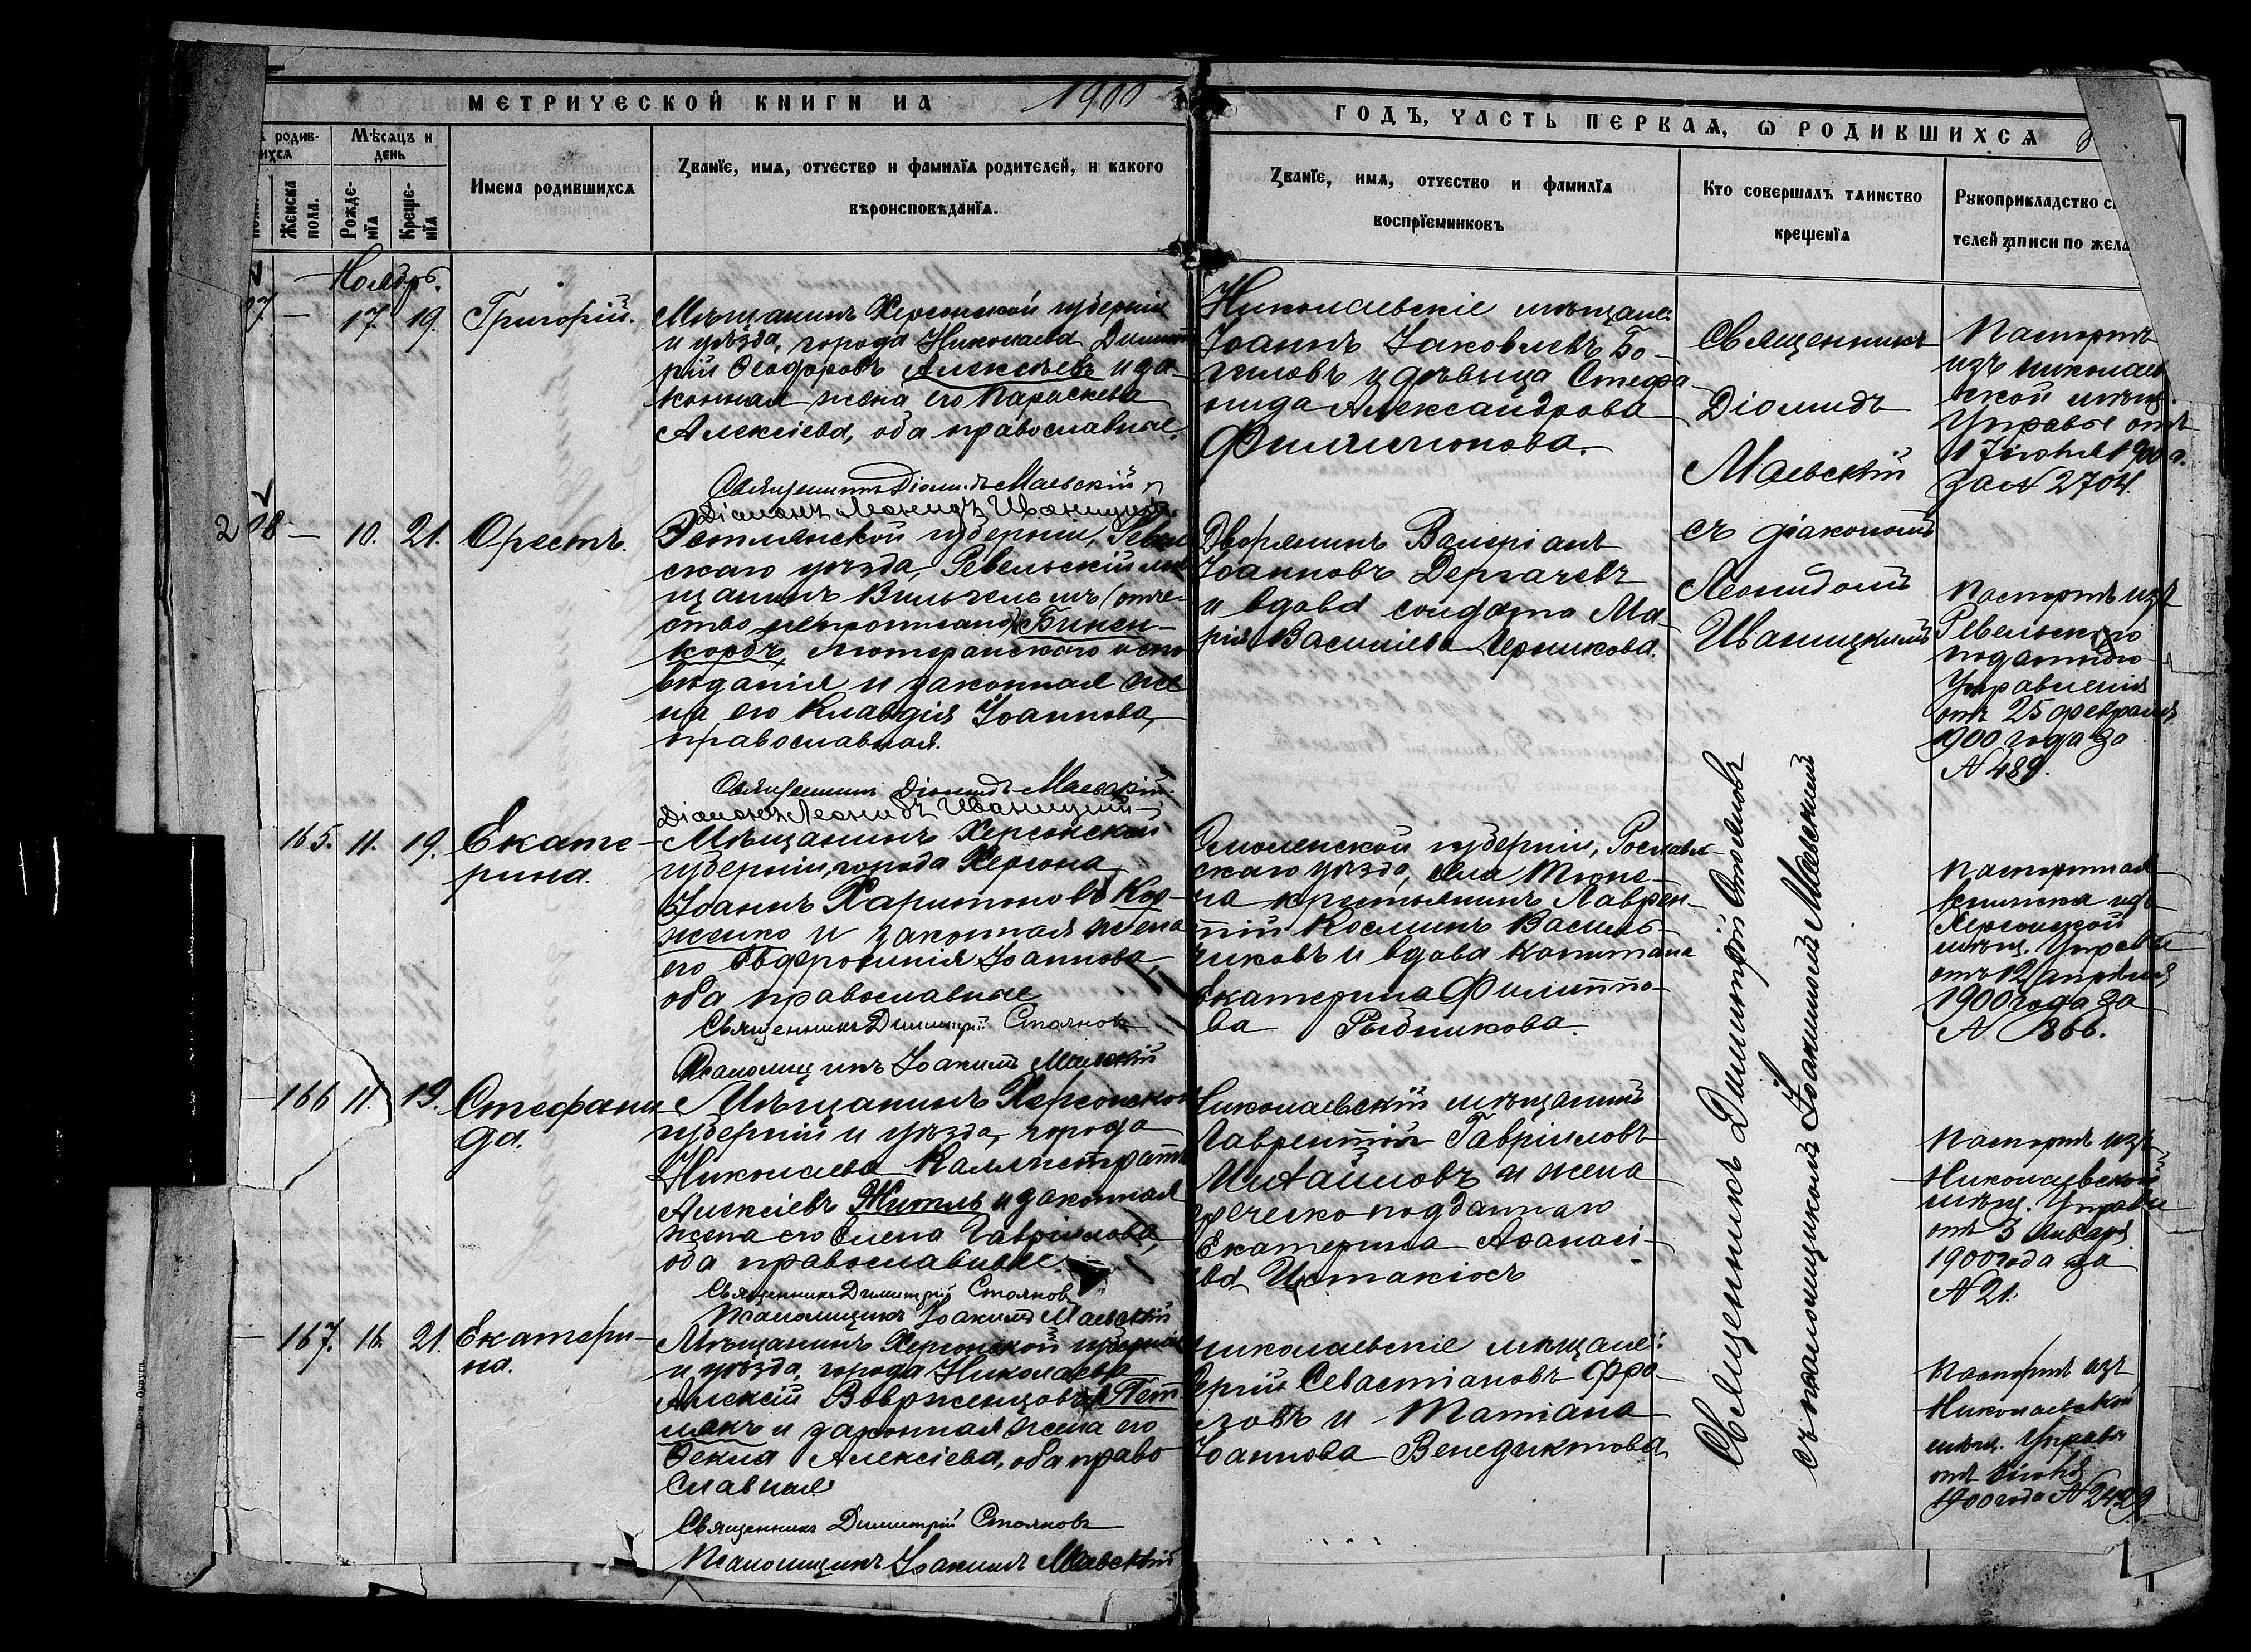 МЕТРИЧЕСКОЙ КНИГИ НА 1900
ГОДЪ, ЧАСТЬ ПЕРВАЯ, О РОДИВШИХСЯ
Мѣсяцъ и
день
Женска
пола.
Рожде-
нія
Креще-
нія
Имена родившихся
Званіе, имя, отчество и фамилія родителей, и какого
вѣроисповѣданія.
Званіе, имя, отчество и фамилія
воспріемниковъ
Кто совершалъ таинство
крещенія
Рукоприкладство
записи по
Ноябрь.
— 17. 19. Григорій.
Мѣщанинъ Херсонской губерніи
и уѣзда, города Николаева Димит
рій Ѳеодоровъ Алексѣевъ и за-
конная жена его Параскева
Алексіева, оба православные.
Священникъ Діомидъ Маевскій
Діаконъ Леонидъ Иваницкій
Николаевскіе мѣщане:
Іоаннъ Іаковлевъ Бо-
гиловъ и дѣвица Стефа-
нида Александрова
Филимонова.
Священникъ
Діомидъ
Маевскій
съ діакономъ
Леонидомъ
Иваницкимъ
Паспортъ
изъ Николаев
ской мѣщ.
Управы отъ
за № 2704.
208 — 10. 21. Орестъ.
Эстлянской губерніи, Ревел
скаго уѣзда, Ревельскій мѣ
щанинъ Вильгельмъ (отче-
ство не прописано) Бинен-
корбъ, лютеранскаго испо
вѣданія и законная же
на его Клавдія Іоаннова,
православная.
Священникъ Діомидъ Маевскій.
Діаконъ Леонидъ Иваницкій
Дворянинъ Валеріанъ
Іоанновъ Дергачевъ
и вдова солдата Ма-
рія Василіева Черникова.
Паспортъ изъ
Ревельскаго
податного
Управленія
отъ 25 февраля
1900 года за
№ 489.
165. 11. 19. Екате-
рина.
Мѣщанинъ Херсонской
губерніи, города Херсона
Іоаннъ Харитоновъ Кор-
женко и законная жена
его Евфросинія Іоаннова,
оба православные
Священникъ Димитрій Стояновъ
Псаломщикъ Іоакимъ Маевскій
Смоленской губерніи, Рославл-
скаго уѣзда, села Тюне-
на крестьянинъ Лаврен-
тій Косминъ Василь-
чиковъ и вдова капитана
Екатерина Филиппо-
ва Рыбникова.
Священникъ Димитрій Стояновъ
съ псаломщикомъ Іоакимомъ Маевскимъ
Паспортная
книжка изъ
Херсонской
мѣщ. Управы
отъ 12 Апрѣля
1900 года за
№ 1866.
166 11. 19. Стефани
да.
Мѣщанинъ Херсонской
губерніи и уѣзда, города
Николаева Каллистратъ
Алексіевъ Житль и законная
жена его Елена Гавріилова,
оба православные.
Священникъ Димитрій Стояновъ
Псаломщикъ Іоакимъ Маевскій
Николаевскій мѣщанинъ
Лаврентій Гавріиловъ
Михаиловъ и жена
греческо-подданнаго
Екатерина Аѳанасі-
ева
Паспортъ изъ
Николаевской
мѣщ. Управы
отъ 3 Января
1900 года за
№ 21.
— 167. 16. 21. Екатери-
на.
Мѣщанинъ Херсонской губерніи
и уѣзда, города Николаева
Алексій
и законная жена его
Ѳекла Алексіева, оба право
славные
Священникъ Димитрій Стояновъ
Псаломщикъ Іоакимъ Маевскій
Николаевскіе мѣщане:
Сергій Севастіановъ Фро-
ловъ и Татіана
Іоаннова Венедиктова
Паспортъ изъ
Николаевской
мѣщ. Управы
отъ
1900 года № 2429